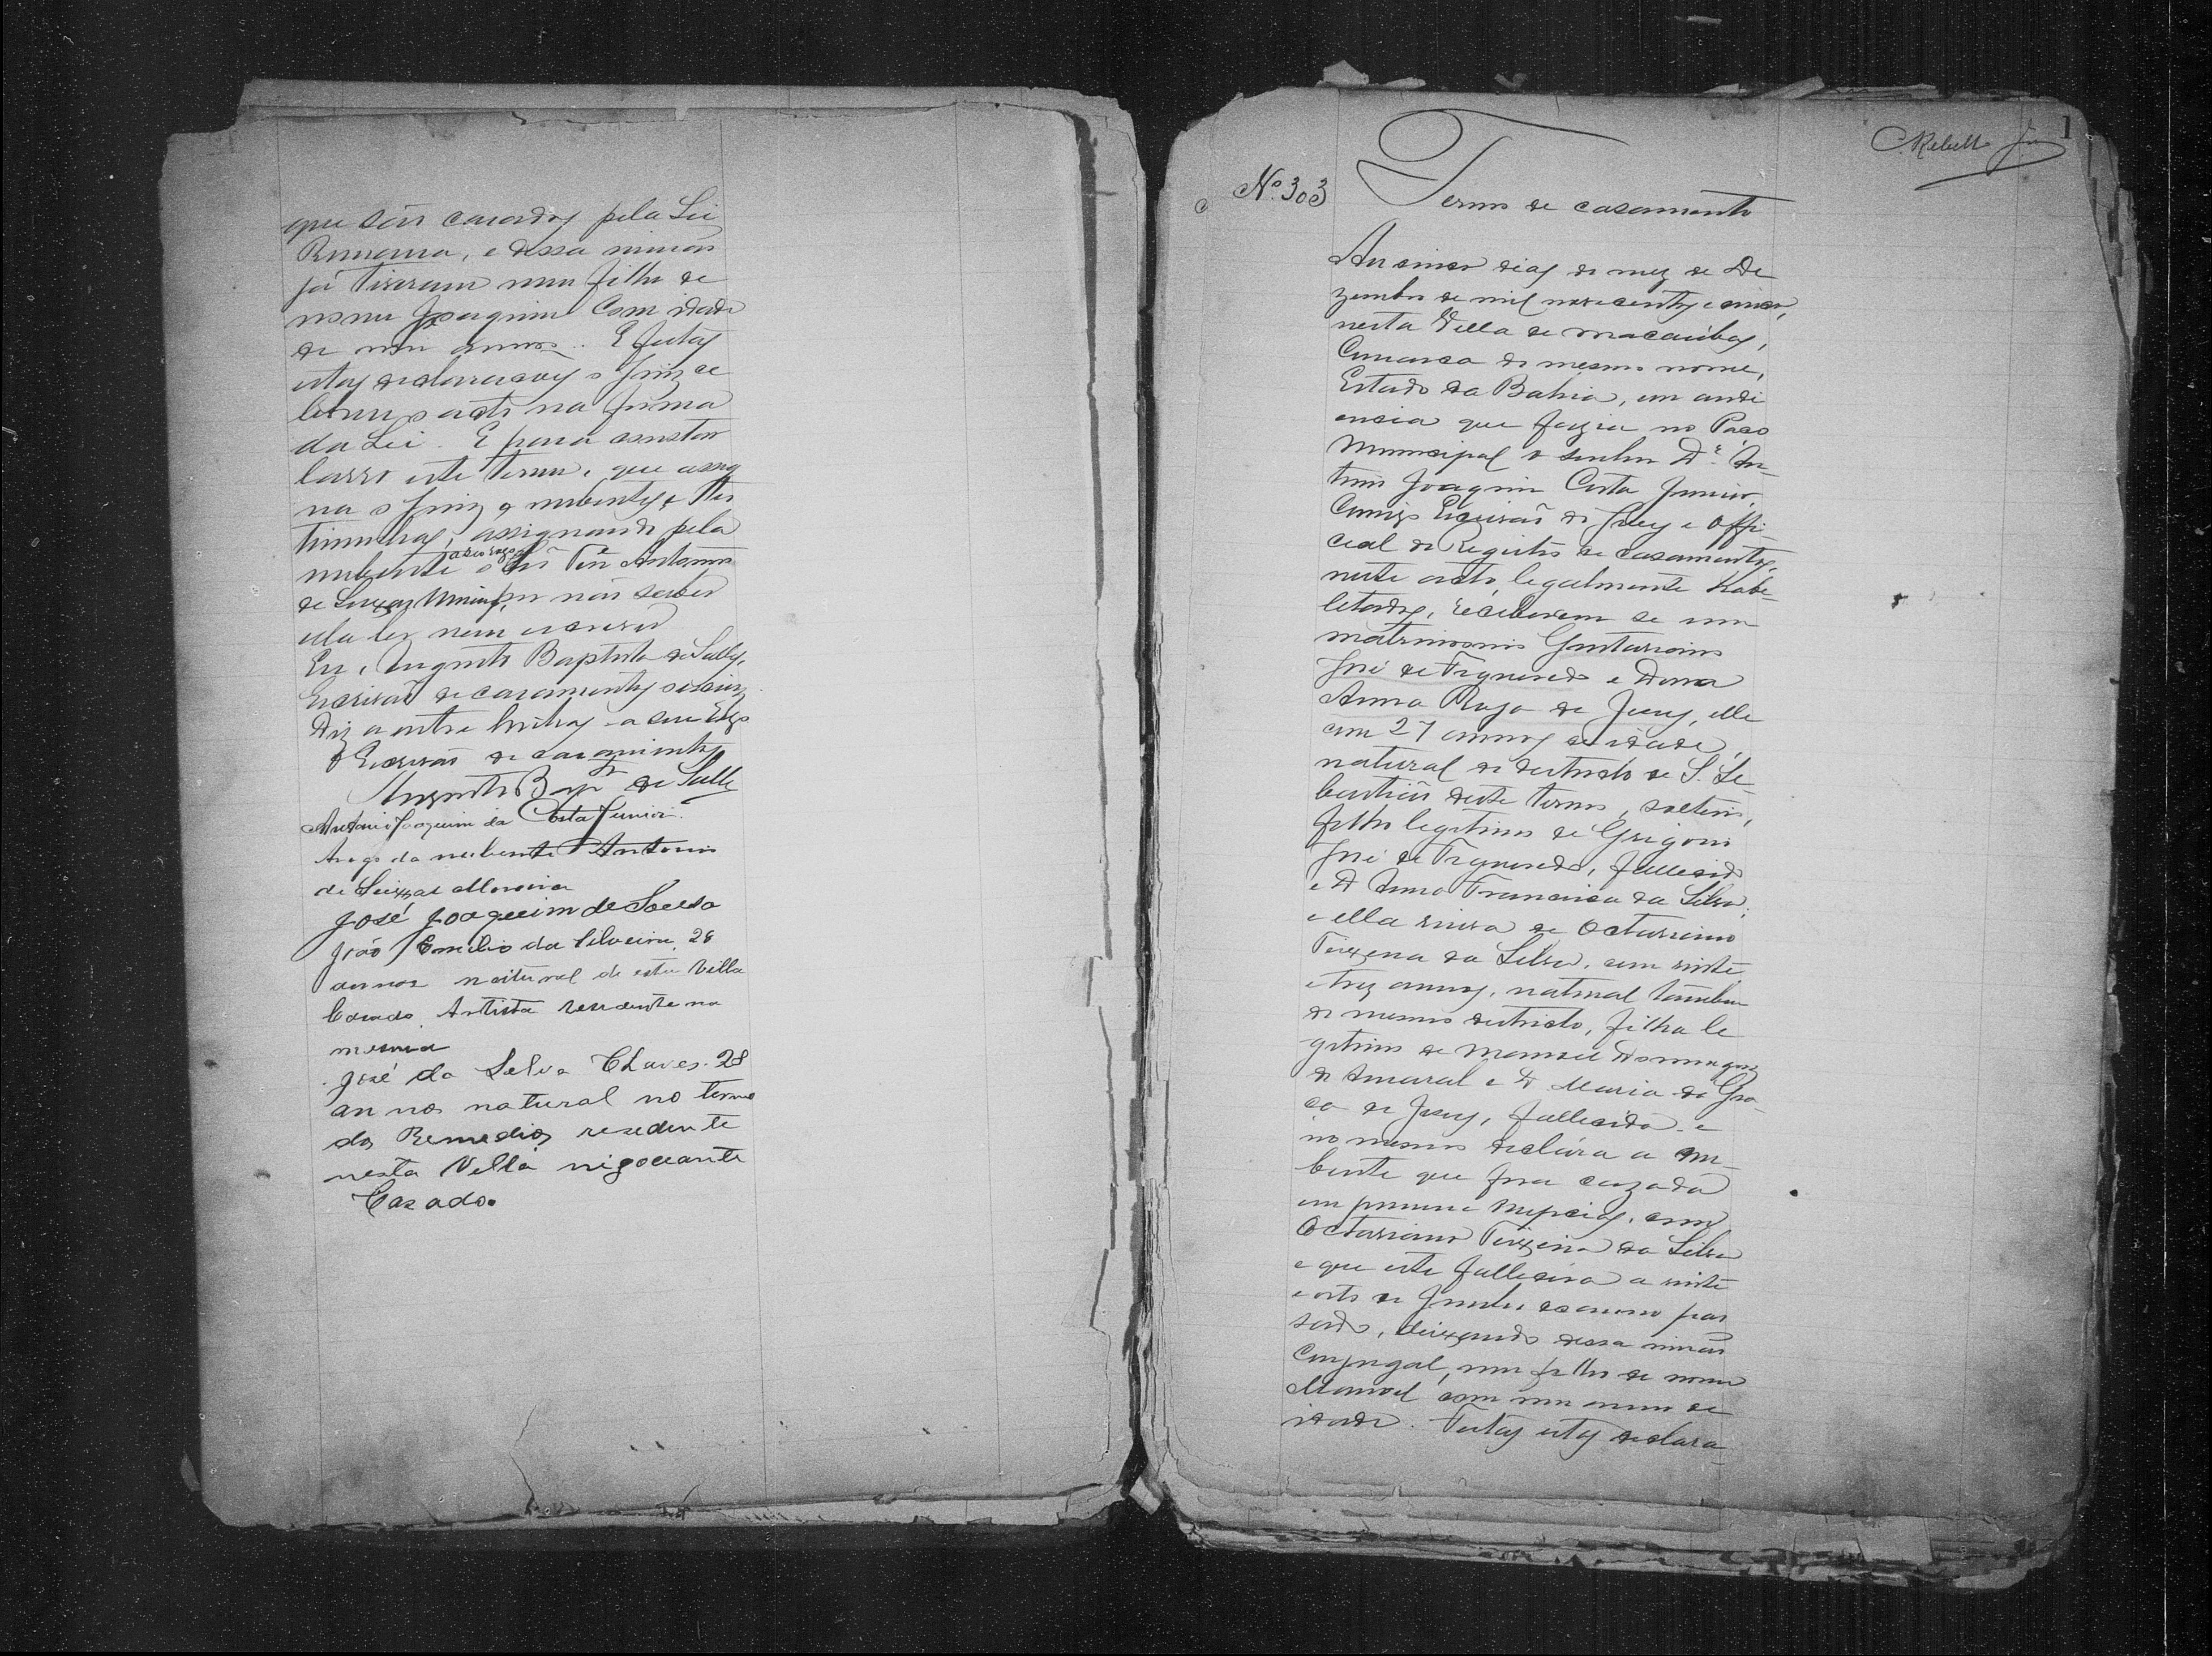 que são casados pela Lei
Romana, e dessa união
já tiveram um filho de
nome Joaquim com idade
de um anno. E feitas
estas declaracoes o Juiz ce
lebrou o acto na forma
da Lei. E para constar
lavro este termo, que assig
na o Juiz os nubentes e tes
timunhas, assignando pela
nubente a seu rogo o Antonio
de Seixas por não saber
ella ler nem escrever
Eu, Augusto Baptista de Salles,
Escrivaõ de casamentos escrevi
Diz a entre linhas - a seu rogo
O Escrivaõ de casamentos
Augusto Bapta de Salles
Antonio Joaquim da Costa Junior.
Arogo da nubente Antonio
de Seixas Moreira
José Joaquim de Souza
João Emilio da Silveira, 28
annos natural de esta Villa
Casado Artista resedente na
mesma
José da Selva Chaves. 28
annos natural no termo
dos Remedios resedente
nesta Vella nigoceante
Cazado.
Rebello Jor
1
No. 303
Termo de casamento
Aos cinco dias do mez de De
zembro de mil novecentos e cinco,
nesta Villa de Macaúbas,
Comarca do mesmo nome,
Estado da Bahia, em audi
encia que fazia no Paço
Municipal o senhor Dr. An
tonio Joaquim Costa Junior,
Comigo Escrivaõ do Jury e Offi-
cial do Registro de casamentos,
neste acto, legalmente habe-
letados, receberem se em
matrimonio Gustavo
José de Figueredo e Dona
Anna Roza de Jesus, elle
com 27 annos de idade,
natural do destricto de S. Se
bastião deste termo, solteiro,
filho legitimo de Grigorio
José de Figueredo, fallecido
e D Anna Francisca da Silva;
e ella viuva de Octaviano
Teixeira da Silva, com vinte
e trez annos, natural tambem
do mesmo destricto, filha le
gitima de Manoel Domingues
do Amaral e D Maria da Gra-
ça de Jesus, fallecida. e
no mesmo declára a nu-
bente que fora cazada
em primeira nupcias, com
Octaviano Teixeira da Silva
e que este fallecera a vinte
e oito de Junho do anno pas
sado, deixando dessa união
conjugal, um filho de nome
Manoel com um anno de
idade. Feitas estas declara